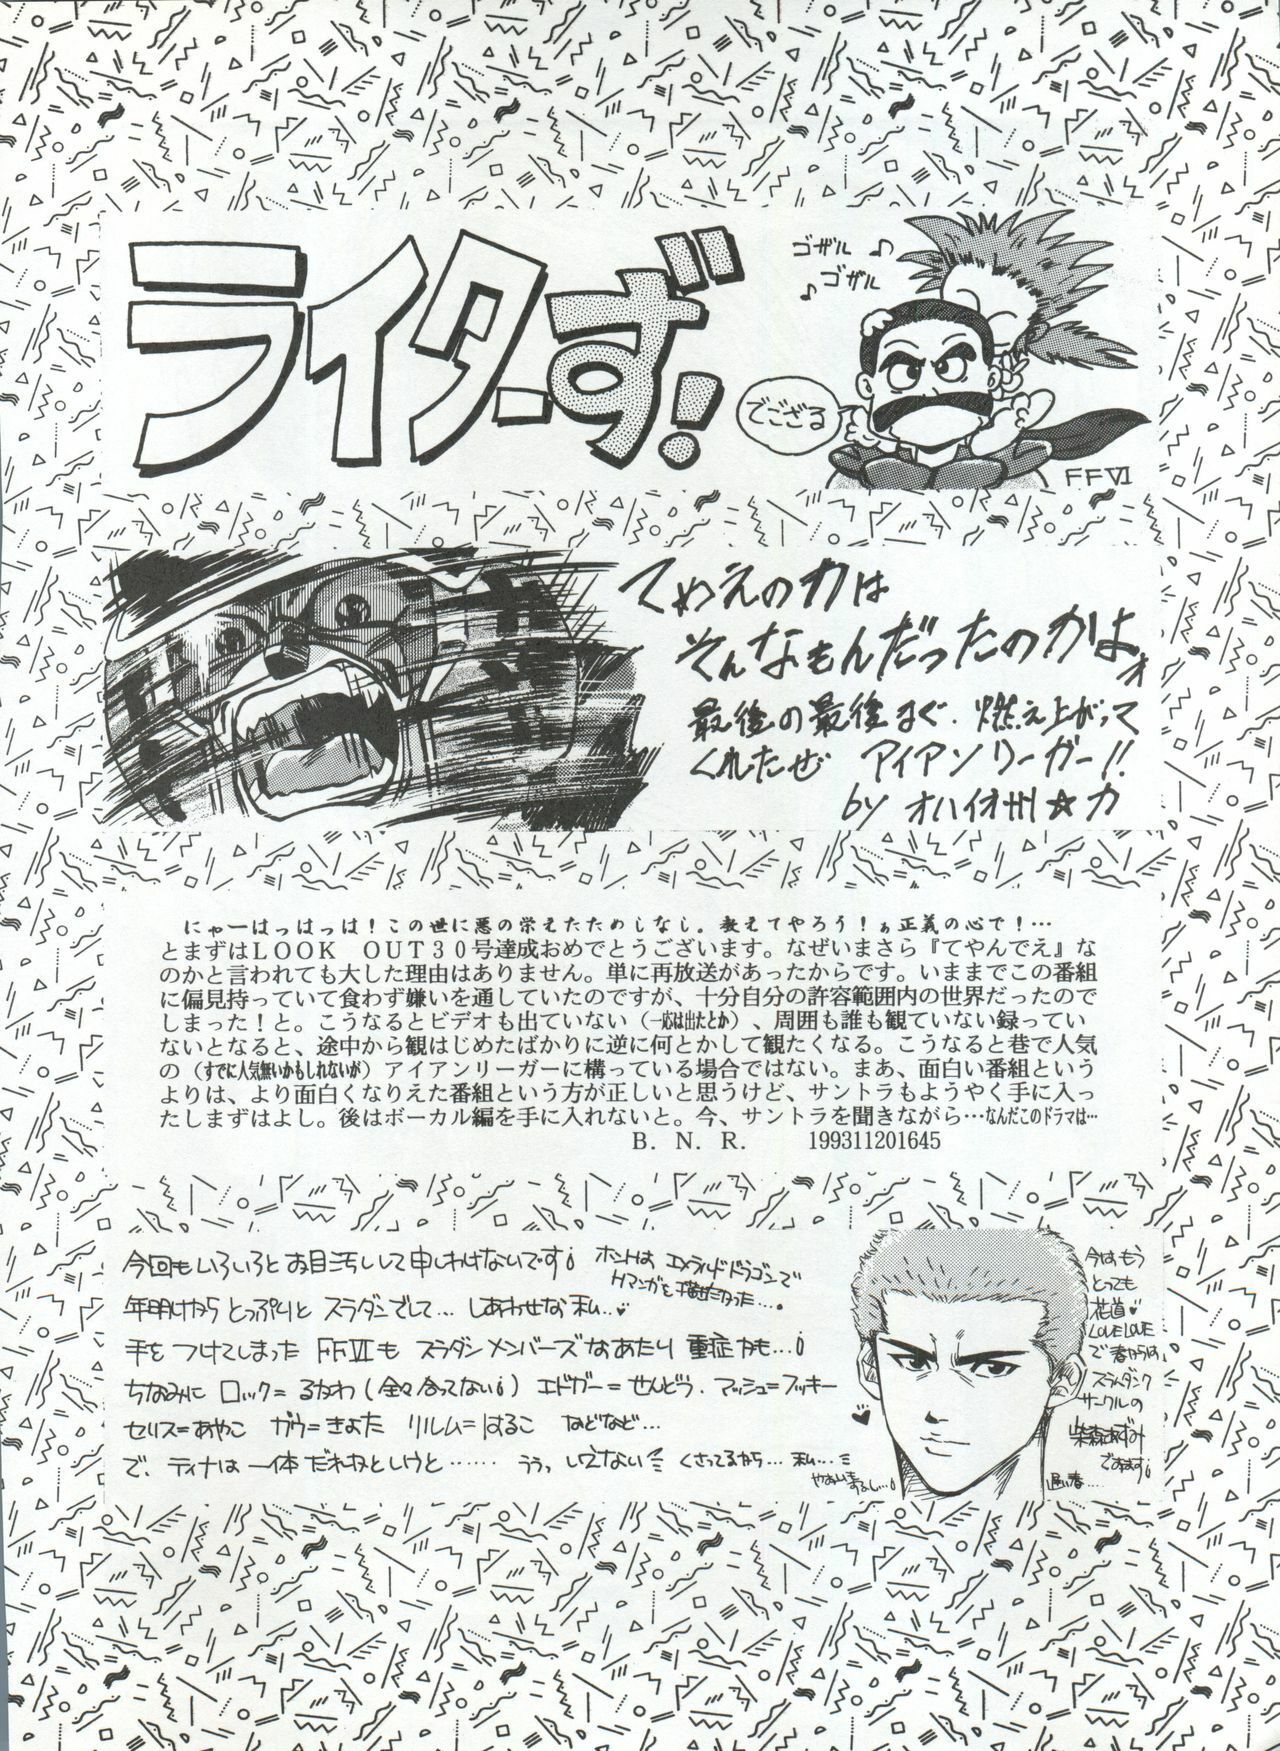 ライターず!
ゴザル♪
♪ゴザル
でござる
FFVI
てめえの力は
そんなもんだったのかよォ
最後の最後まで、燃え上がって
くれたぜ アイアンリーガー!!
by オハイオ州☆力
にゃーはっはっは!この世に悪の栄えたためしなし。教えてやろう!ぁ正義の心で!…
とまずはLOOK OUT30号達成おめでとうございます。なぜいまさら『てやんでえ』な
のかと言われても大した理由はありません。単に再放送があったからです。いままでこの番組
に偏見持っていて食わず嫌いを通していたのですが、十分自分の許容範囲内の世界だったので
しまった!と。こうなるとビデオも出ていない(一応は出たとか)、周囲も誰も観ていない録ってい
ないとなると、途中から観はじめたばかりに逆に何とかして観たくなる。こうなると巷で人気
の(すでに人気無いかもしれないが)アイアンリーガーに構っている場合ではない。まあ、面白い番組という
よりは、より面白くなりえた番組という方が正しいと思うけど、サントラもようやく手に入っ
たしまずはよし。後はボーカル編を手に入れないと。今、サントラを聞きながら…なんだこのドラマは…
B. N. R. 199311201645
今回もいろいろとお目汚しして申しわけないです!
ホントは エメラルドドラゴンで
マンガを描きたかった…
年明けから とっぷりと スラダンでして… しあわせな私…♥
手を つけてしまった FFVIも スラダンメンバーズなあたり 重症かも…!
ちなみに ロック=るかわ(全々合ってない!) エドガー=せんどう. マッシュ=フッキー
セリス=あやこ ガウ=きよた リルム=はるこ などなど…
で、ティナは 一体だれねというと…… ううっ いえない くさってるから… 私…
今はもう
とっても
花道♥
LOVE LOVE
で 春からは、
スラムダンク
サークルの
柴森あずみ
でおます!